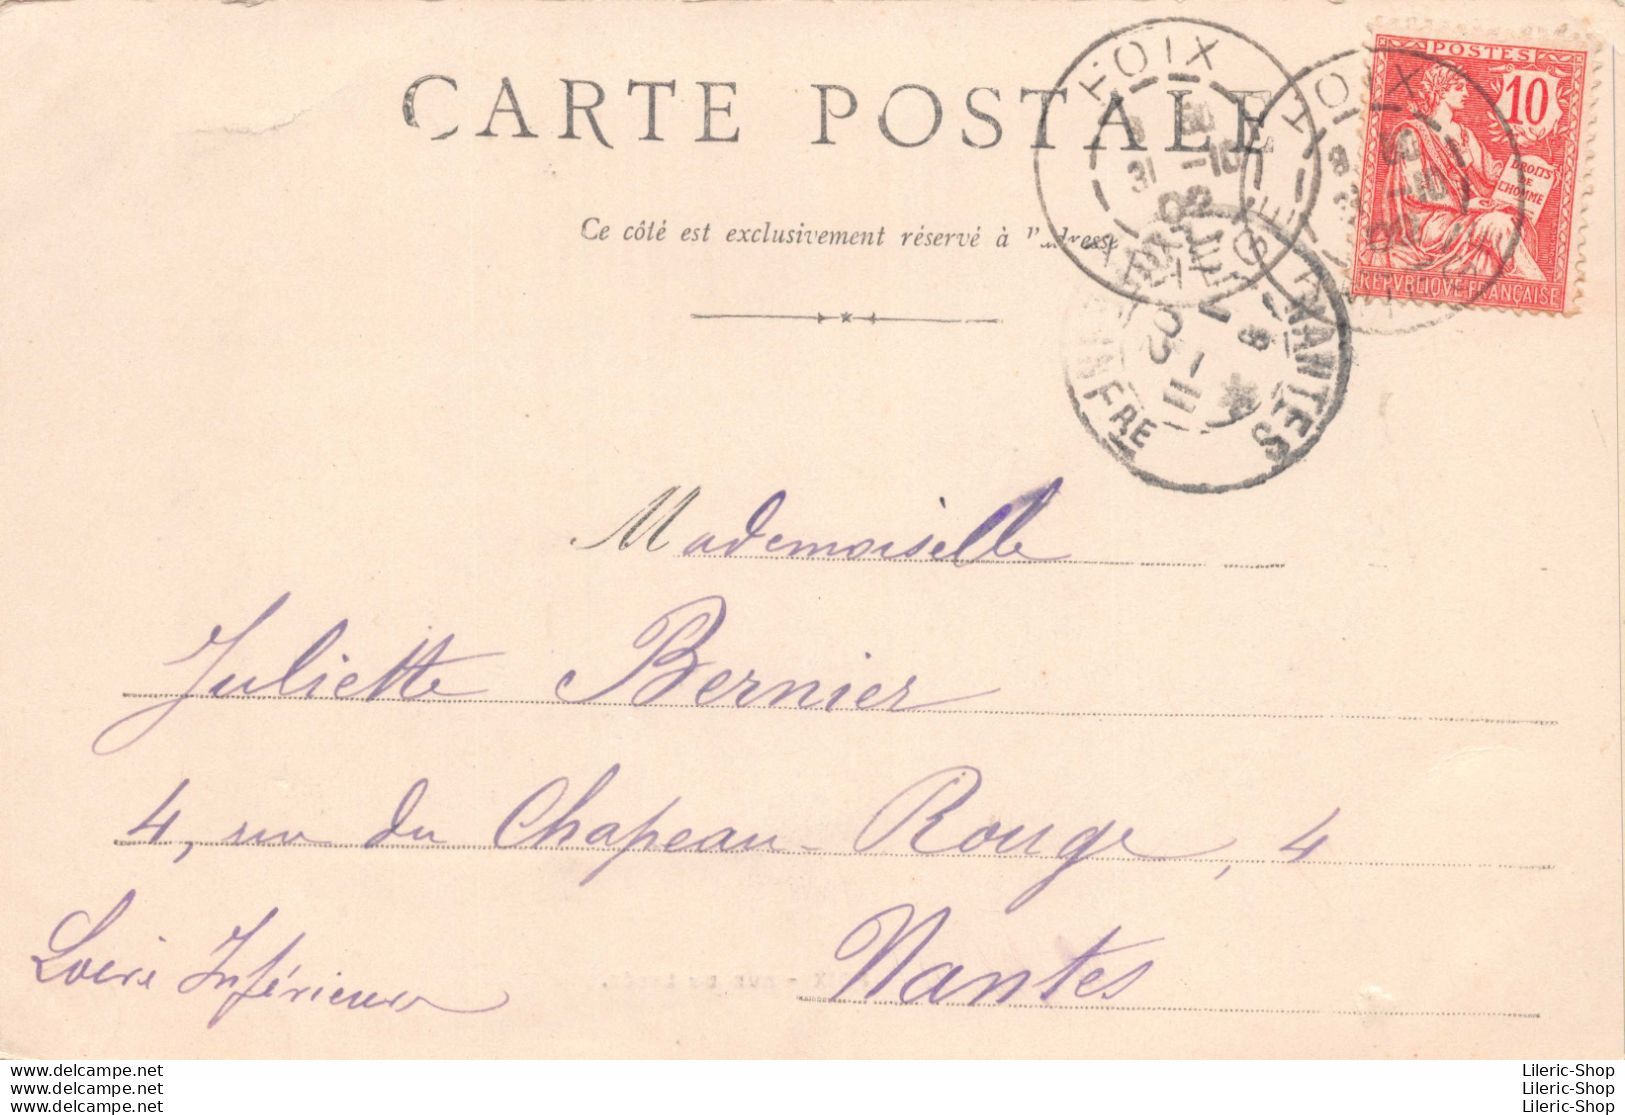 CARTE POSTALE
Ce côté est exclusivement réservé à l'adresse
POSTES
10
DROITS
DE
L'HOMME
REPVBLIQVE FRANÇAISE
FOIX
31 -10
02
ARIÈGE
FOIX
-10
NANTES
LOIRE INFRE
8
1 - 11
02
Mademoiselle
Juliette Bernier
4, rue du Chapeau-Rouge, 4
Nantes
Loire Inférieure
www.delcampe.net
www.delcampe.net
www.delcampe.net
Lileric-Shop
Lileric-Shop
Lileric-Shop